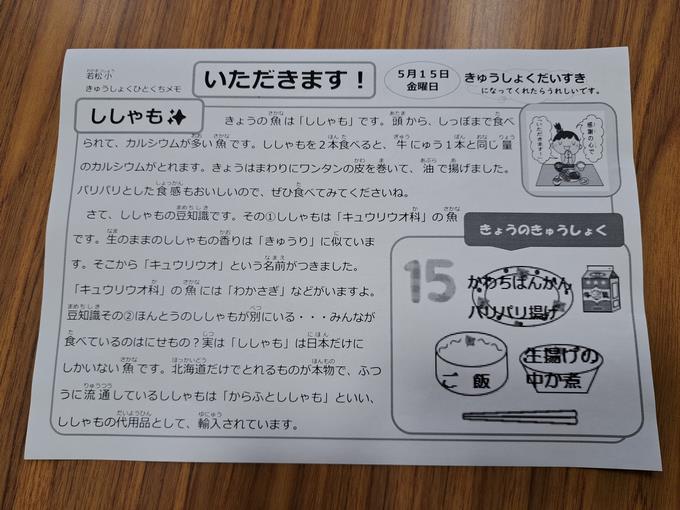 若松小
きゅうしょくひとくちメモ
いただきます！
５月１５日
金曜日
きゅうしょくだいすき
になってくれたらうれしいです。
ししゃも
きょうの魚は「ししゃも」です。頭から、しっぽまで食べ
られて、カルシウムが多い魚です。ししゃもを２本食べると、牛にゅう１本と同じ量
のカルシウムがとれます。きょうはまわりにワンタンの皮を巻いて、油で揚げました。
パリパリとした食感もおいしいので、ぜひ食べてみてくださいね。
さて、ししゃもの豆知識です。その①ししゃもは「キュウリウオ科」の魚
です。生のままのししゃもの香りは「きゅうり」に似ていま
す。そこから「キュウリウオ」という名前がつきました。
「キュウリウオ科」の魚には「わかさぎ」などがいますよ。
豆知識その②ほんとうのししゃもが別にいる・・・みんなが
食べているのはにせもの？実は「ししゃも」は日本だけに
しかいない魚です。北海道だけでとれるものが本物で、ふつ
うに流通しているししゃもは「からふとししゃも」といい、
ししゃもの代用品として、輸入されています。
感謝の心で
いただきます！
きょうのきゅうしょく
15
かわちばんかん
パリパリ揚げ
ご飯
生揚げの
中か煮